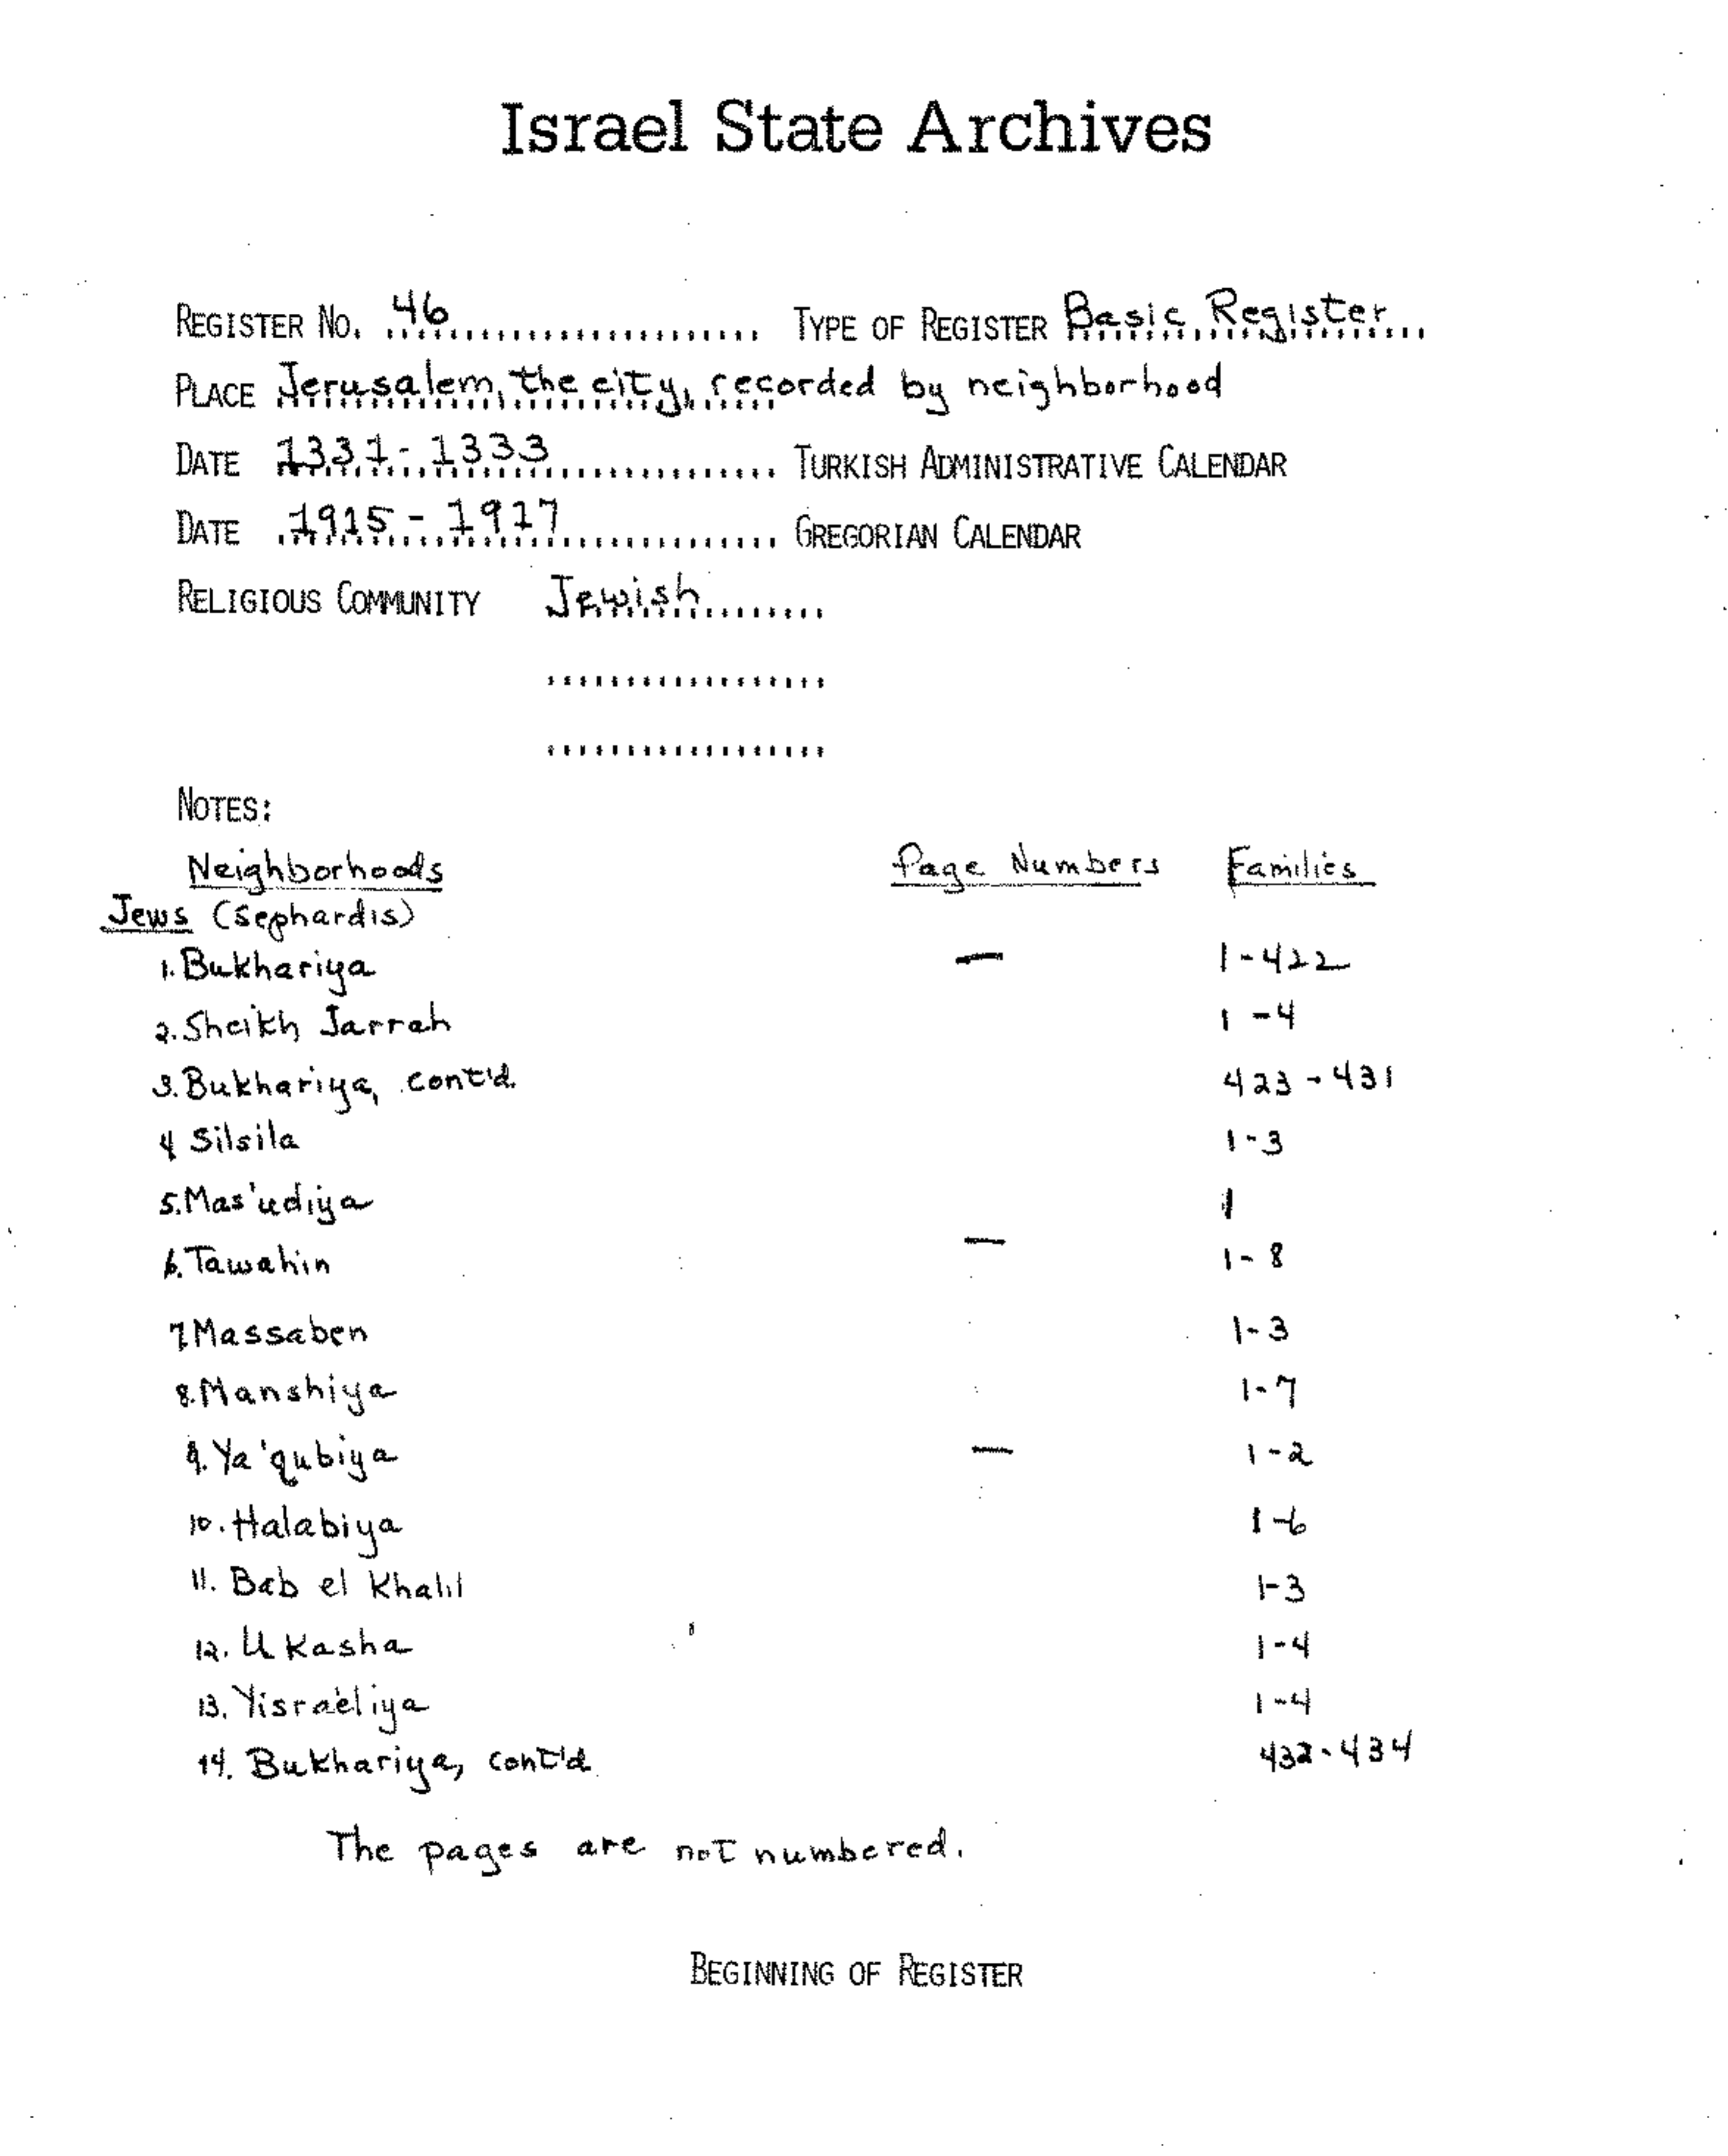 Israel State Archives
REGISTER NO. 46 TYPE OF REGISTER Basic Register
PLACE Jerusalem, the city, recorded by neighborhood
DATE 1331-1333 TURKISH ADMINISTRATIVE CALENDAR
DATE 1915-1917 GREGORIAN CALENDAR
RELIGIOUS COMMUNITY Jewish
NOTES:
Neighborhoods Page Numbers Families
Jews (Sephardis)
1. Bukhariya — 1-422
2. Sheikh Jarrah 1-4
3. Bukhariya, cont'd. 423-431
4 Silsila 1-3
5. Mas'udiya 1
6. Tawahin — 1-8
7. Massaben 1-3
8. Manshiya 1-7
9. Ya'qubiya — 1-2
10. Halabiya 1-6
11. Bab el Khalil 1-3
12. Ukasha 1-4
13. Yisraeliya 1-4
14. Bukhariya, cont'd 432-434
The pages are not numbered.
BEGINNING OF REGISTER